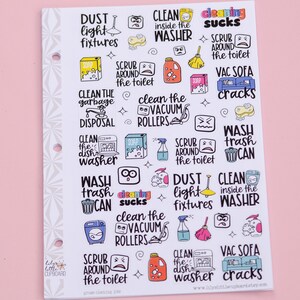 DUST
light
fixtures
CLEAN
inside the
WASHER
cleaning
sucks
SCRUB
AROUND
the toilet
SCRUB
AROUND
the toilet
VAC SOFA
cracks
CLEAN THE
garbage
DISPOSAL
clean the
VACUUM
ROLLERS
CLEAN
the
dish
washer
SCRUB
AROUND
the toilet
CLEAN
inside the
WASHER
WASH
trash
CAN
cleaning
sucks
DUST
light
fixtures
CLEAN
inside the
WASHER
clean the
VACUUM
ROLLERS
WASH
trash
CAN
SCRUB
AROUND
the toilet
CLEAN
the
dish
washer
VAC SOFA
cracks